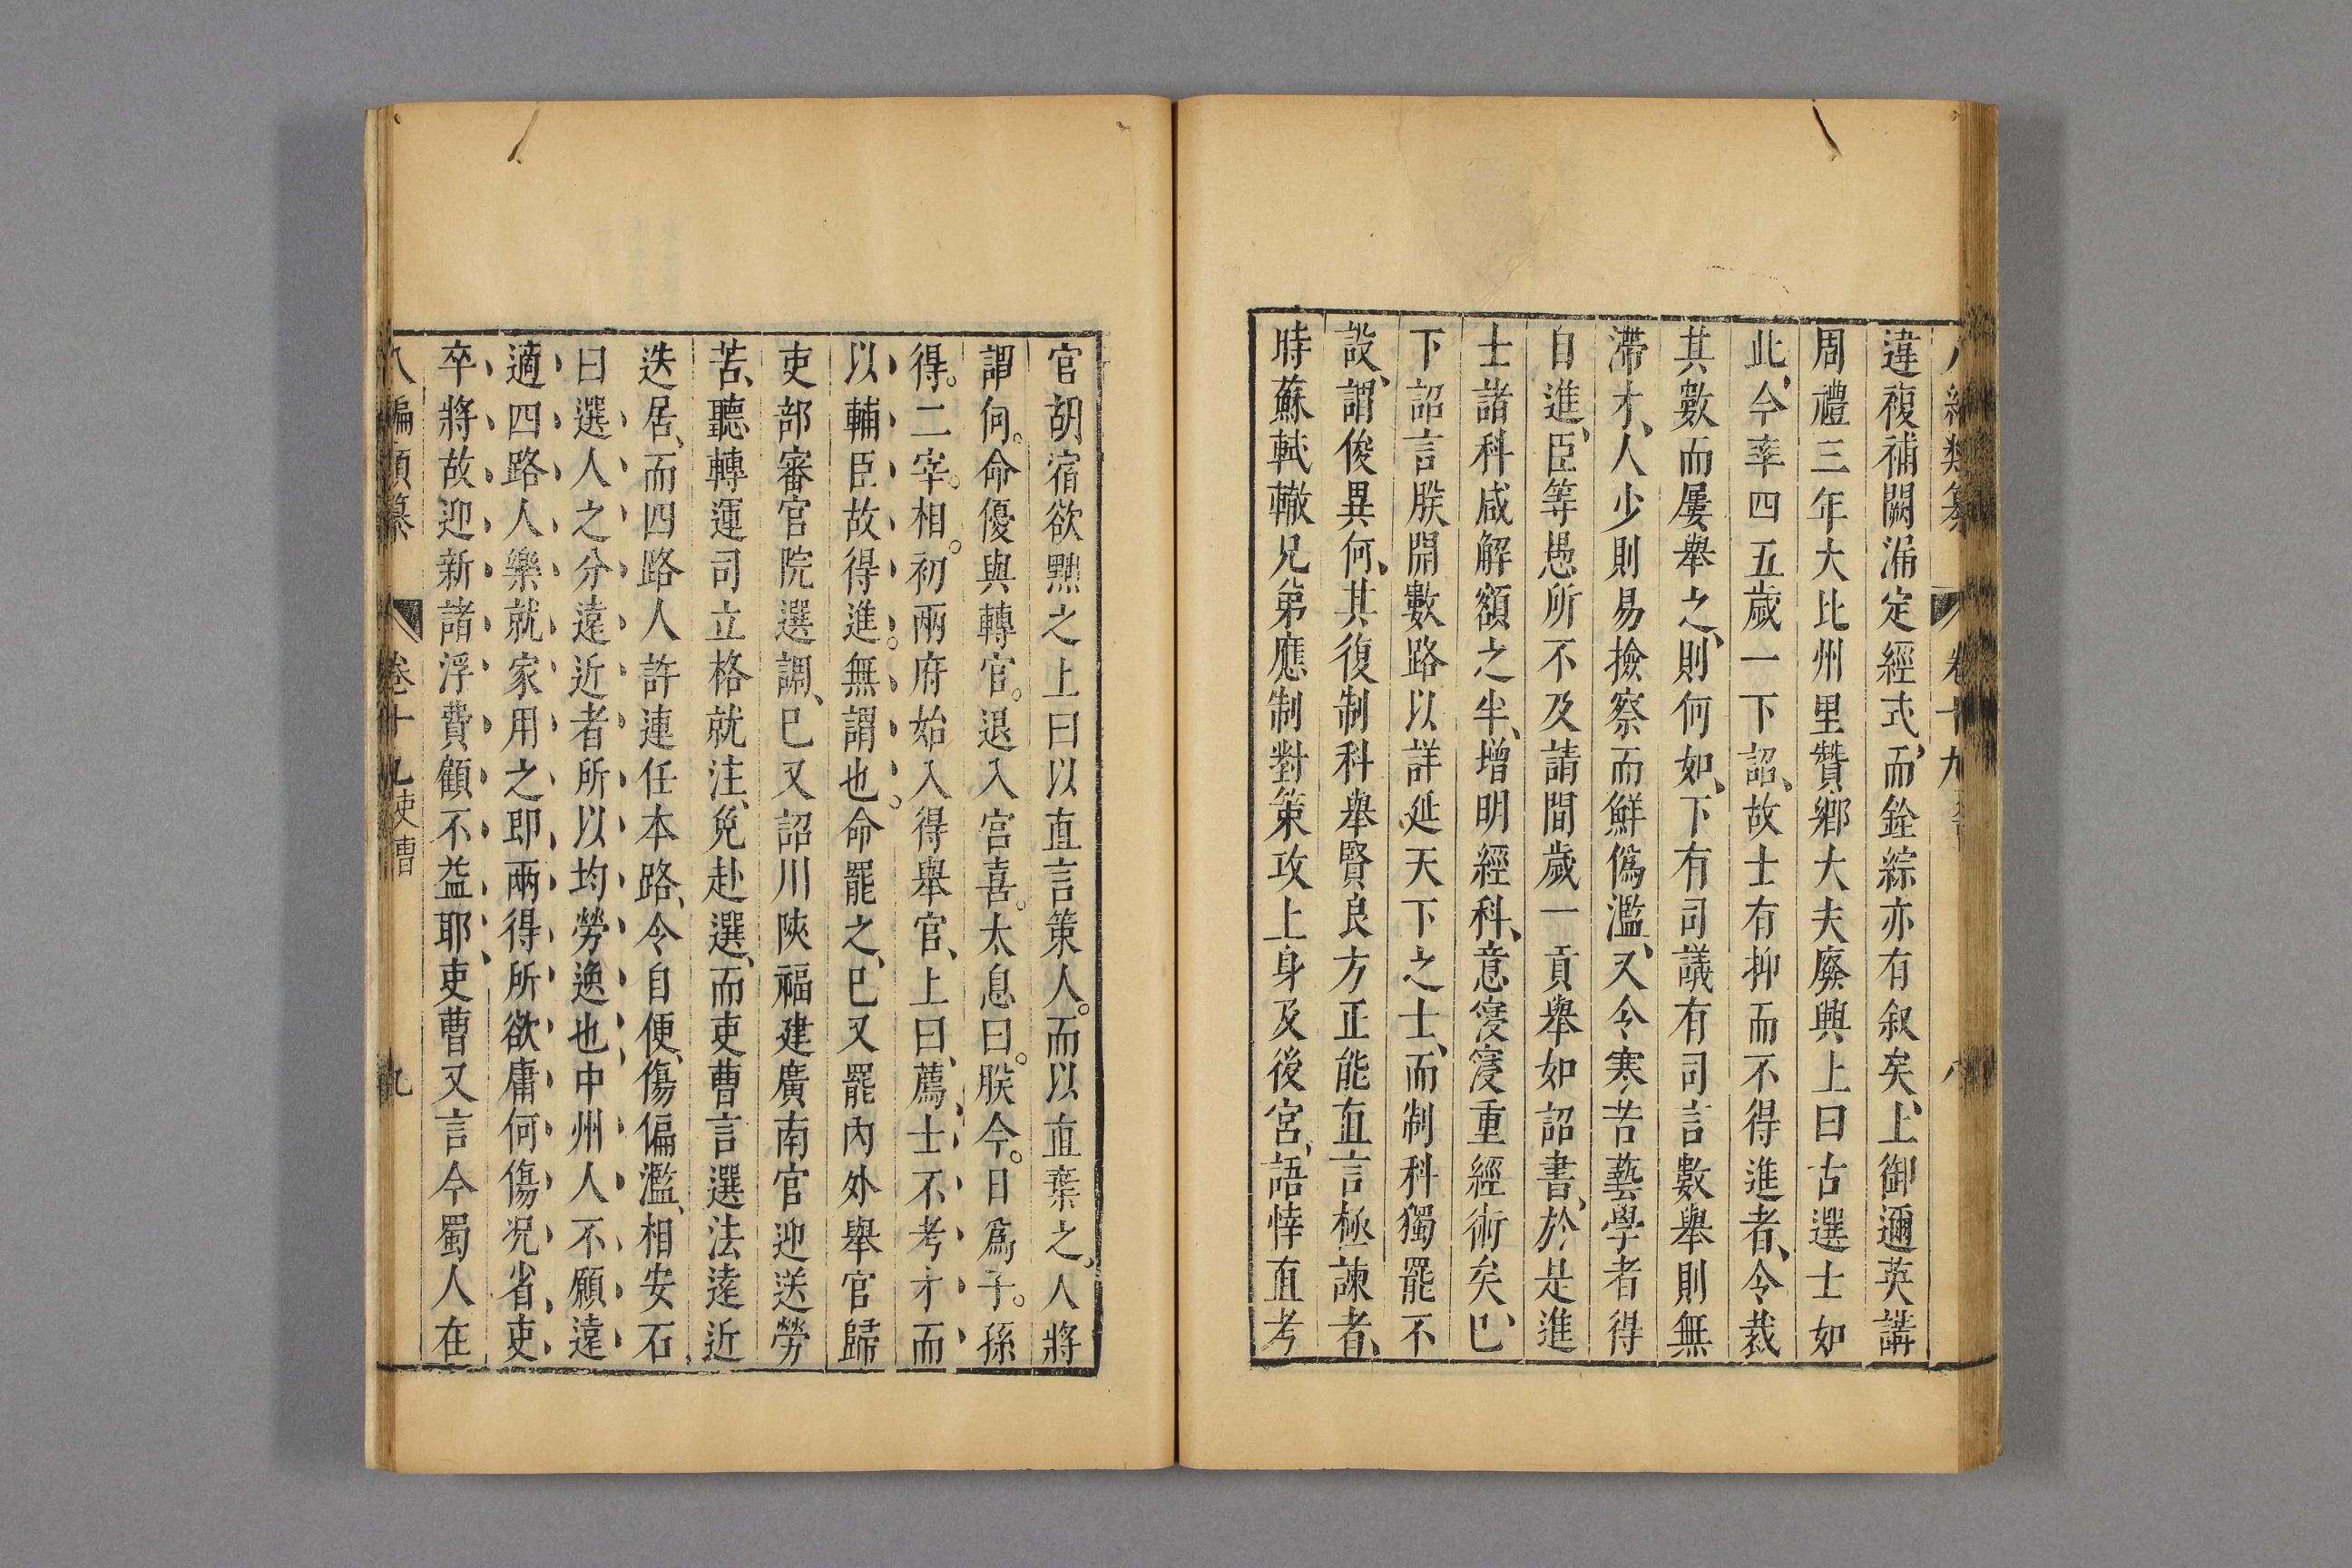 違複補闕漏定經式而銓綜亦有叙矣上御邇英講
周禮三年大比州里贊鄉大夫廢興上曰古選士如
此今率四五歲一下詔故士有抑而不得進者令裁
其數而屢舉之則何如下有司議有司言數舉則無
滯才人少則易撿察而鮮僞濫又令寒苦藝學者得
自進臣等愚所不及請間歲一貢舉如詔書於是進
士諸科咸解額之半增明經科意寖寖重經術矣巳
下詔言朕開數路以詳延天下之士而制科獨罷不
設謂俊異何其復制科舉賢良方正能直言極諫者
時蘇軾轍兄弟應制對策攻上身及後宮語悻直考
官胡宿欲黜之上曰以直言策人而以直棄之人將
謂何命優與轉官退入宮喜太息曰朕今日爲子孫
得二宰相初兩府始入得舉官上曰薦士不考才而
以輔臣故得進無謂也命罷之巳又罷內外舉官歸
吏部審官院選調巳又詔川陝福建廣南官迎送勞
苦聽轉運司立格就注免赴選而吏曹言選法遠近
迭居而四路人許連任本路令自便傷偏濫相安石
曰選人之分遠近者所以均勞逸也中州人不願遠
適四路人樂就家用之即兩得所欲庸何傷况省吏
卒將故迎新諸浮費顧不益耶吏曹又言今蜀人在
八編類纂 卷十九 吏曹 九